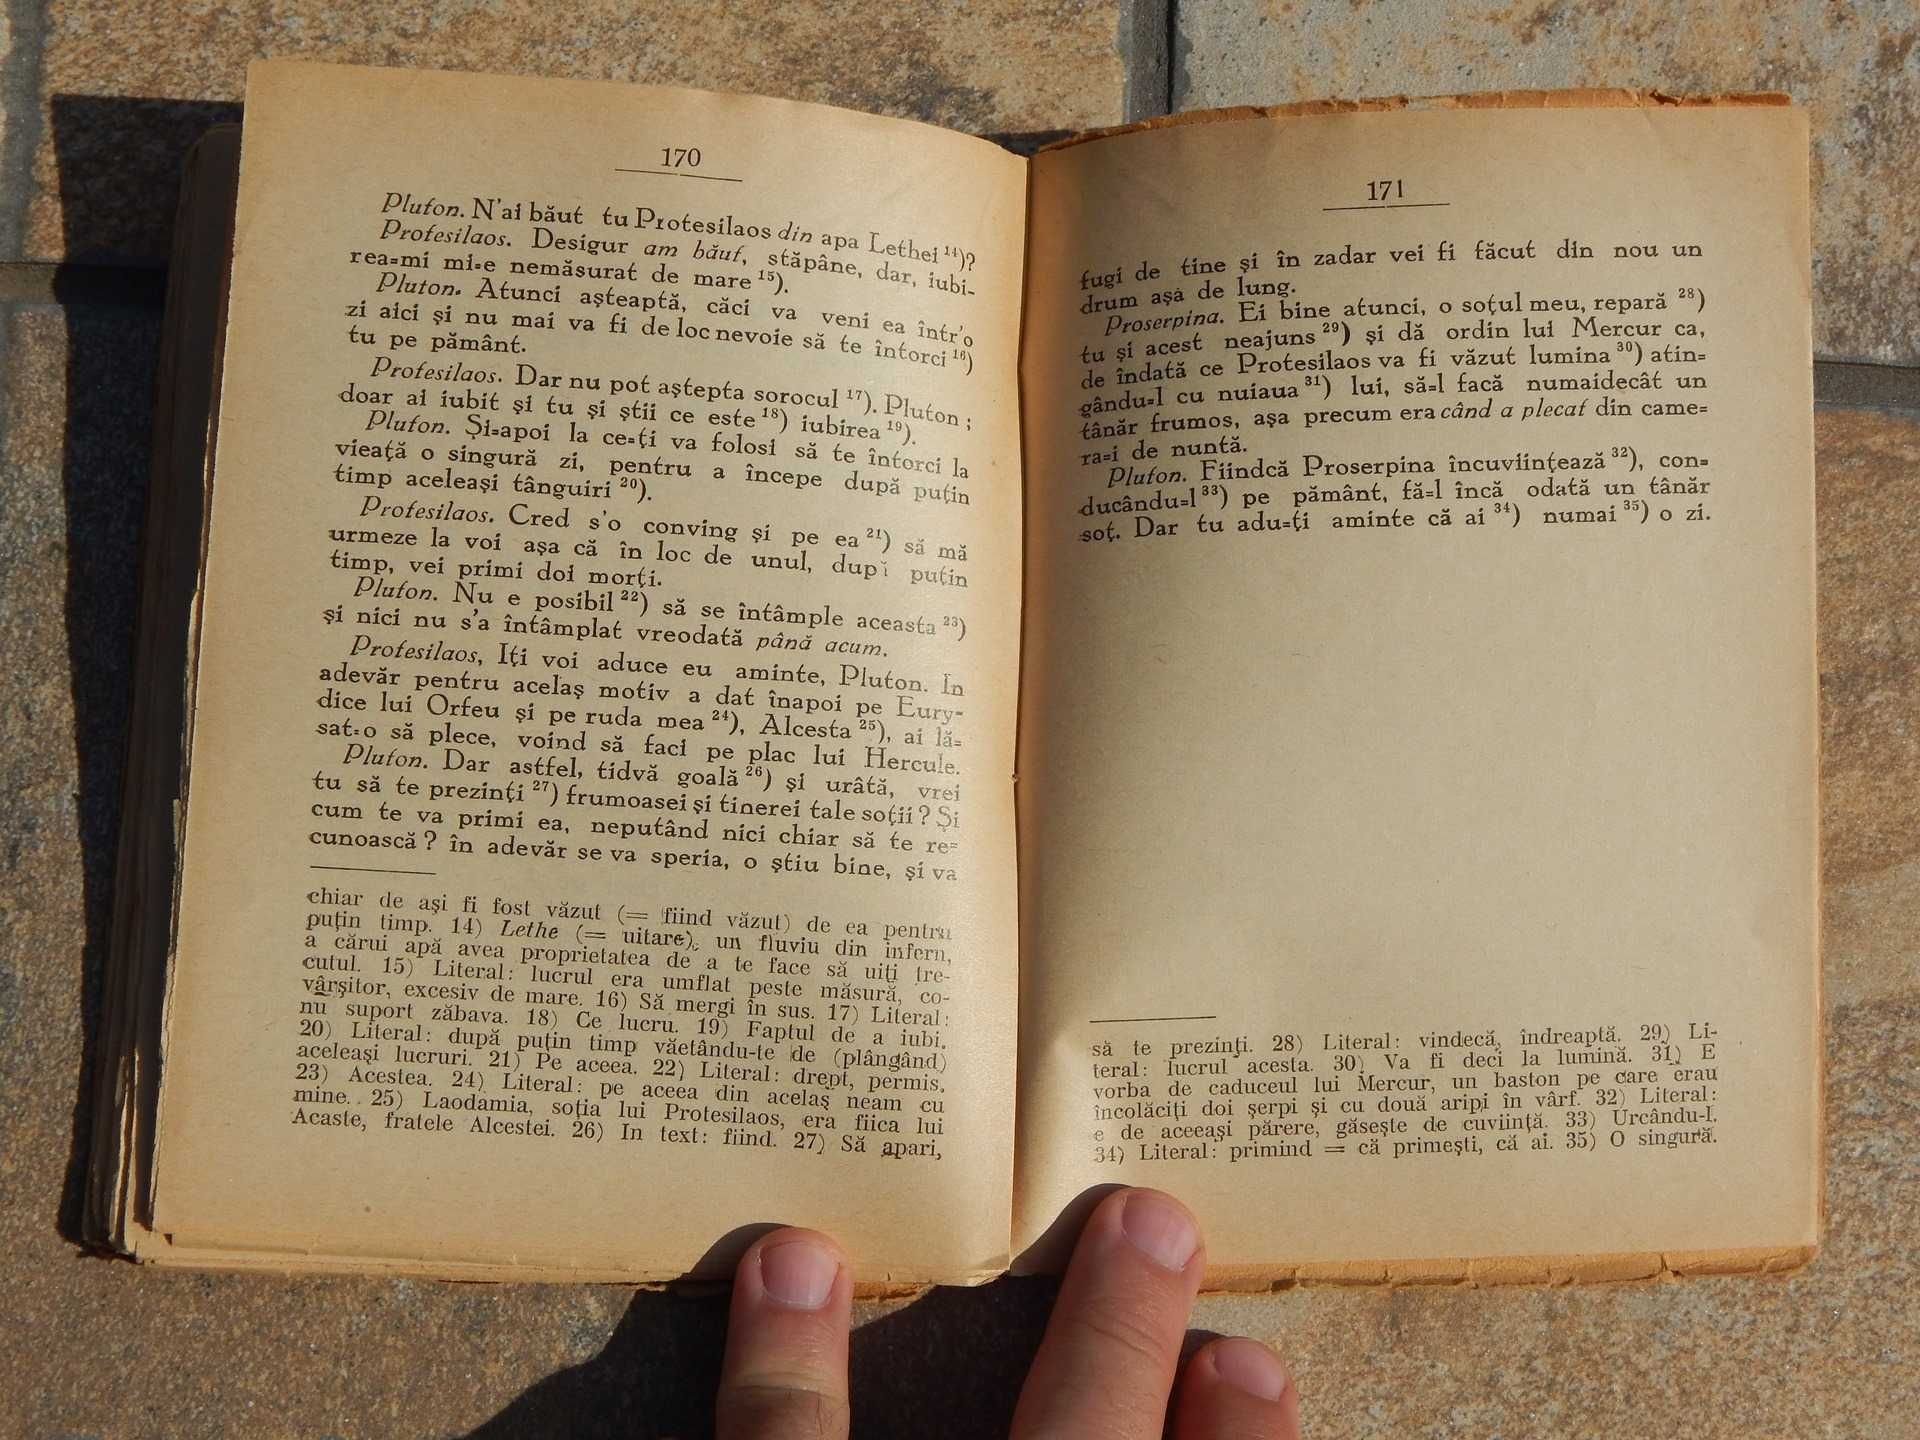 170
Pluton. N'ai băut tu Protesilaos din apa Lethei 14)?
Protesilaos. Desigur am băut, stăpâne, dar, iubi-
rea=mi mi=e nemăsurat de mare 15).
Pluton. Atunci așteaptă, căci va veni ea într'o
zi aici și nu mai va fi de loc nevoie să te întorci 16)
tu pe pământ.
Protesilaos. Dar nu pot aștepta sorocul 17). Pluton;
doar ai iubit și tu și știi ce este 18) iubirea 19).
Pluton. Și=apoi la ce=ți va folosi să te întorci la
vieață o singură zi, pentru a începe după puțin
timp aceleași tânguiri 20).
Protesilaos. Cred s'o conving și pe ea 21) să mă
urmeze la voi așa că în loc de unul, după puțin
timp, vei primi doi morți.
Pluton. Nu e posibil 22) să se întâmple aceasta 23)
și nici nu s'a întâmplat vreodată până acum.
Protesilaos, Iți voi aduce eu aminte, Pluton. In
adevăr pentru acelaș motiv a dat înapoi pe Eury-
dice lui Orfeu și pe ruda mea 24), Alcesta 25), ai lă=
sat=o să plece, voind să faci pe plac lui Hercule.
Pluton. Dar astfel, tidvă goală 26) și urâtă, vrei
tu să te prezinți 27) frumoasei și tinerei tale soții? Și
cum te va primi ea, neputând nici chiar să te re=
cunoască? în adevăr se va speria, o știu bine, și va
chiar de ași fi fost văzut (= fiind văzut) de ea pentru
puțin timp. 14) Lethe (= uitare), un fluviu din infern,
a cărui apă avea proprietatea de a te face să uiți tre-
cutul. 15) Literal: lucrul era umflat peste măsură, co-
vârșitor, excesiv de mare. 16) Să mergi în sus. 17) Literal:
nu suport zăbava. 18) Ce lucru. 19) Faptul de a iubi.
20) Literal: după puțin timp văetându-te de (plângând)
aceleași lucruri. 21) Pe aceea. 22) Literal: drept, permis.
23) Acestea. 24) Literal: pe aceea din acelaș neam cu
mine. 25) Laodamia, soția lui Protesilaos, era fiica lui
Acaste, fratele Alcestei. 26) In text: fiind. 27) Să apari,
171
fugi de tine și în zadar vei fi făcut din nou un
drum așa de lung.
Proserpina. Ei bine atunci, o soțul meu, repară 28)
tu și acest neajuns 29) și dă ordin lui Mercur ca,
de îndată ce Protesilaos va fi văzut lumina 30) atin=
gându=l cu nuiaua 31) lui, să=l facă numaidecât un
tânăr frumos, așa precum era când a plecat din came=
ra=i de nuntă.
Pluton. Fiindcă Proserpina încuviințează 32), con=
ducându=l 33) pe pământ, fă=l încă odată un tânăr
soț. Dar tu adu=ți aminte că ai 34) numai 35) o zi.
să te prezinți. 28) Literal: vindecă, îndreaptă. 29) Li-
teral: lucrul acesta. 30) Va fi deci la lumină. 31) E
vorba de caduceul lui Mercur, un baston pe care erau
încolăciți doi șerpi și cu două aripi în vârf. 32) Literal:
e de aceeași părere, găsește de cuviință. 33) Urcându-l.
34) Literal: primind = că primești, că ai. 35) O singură.